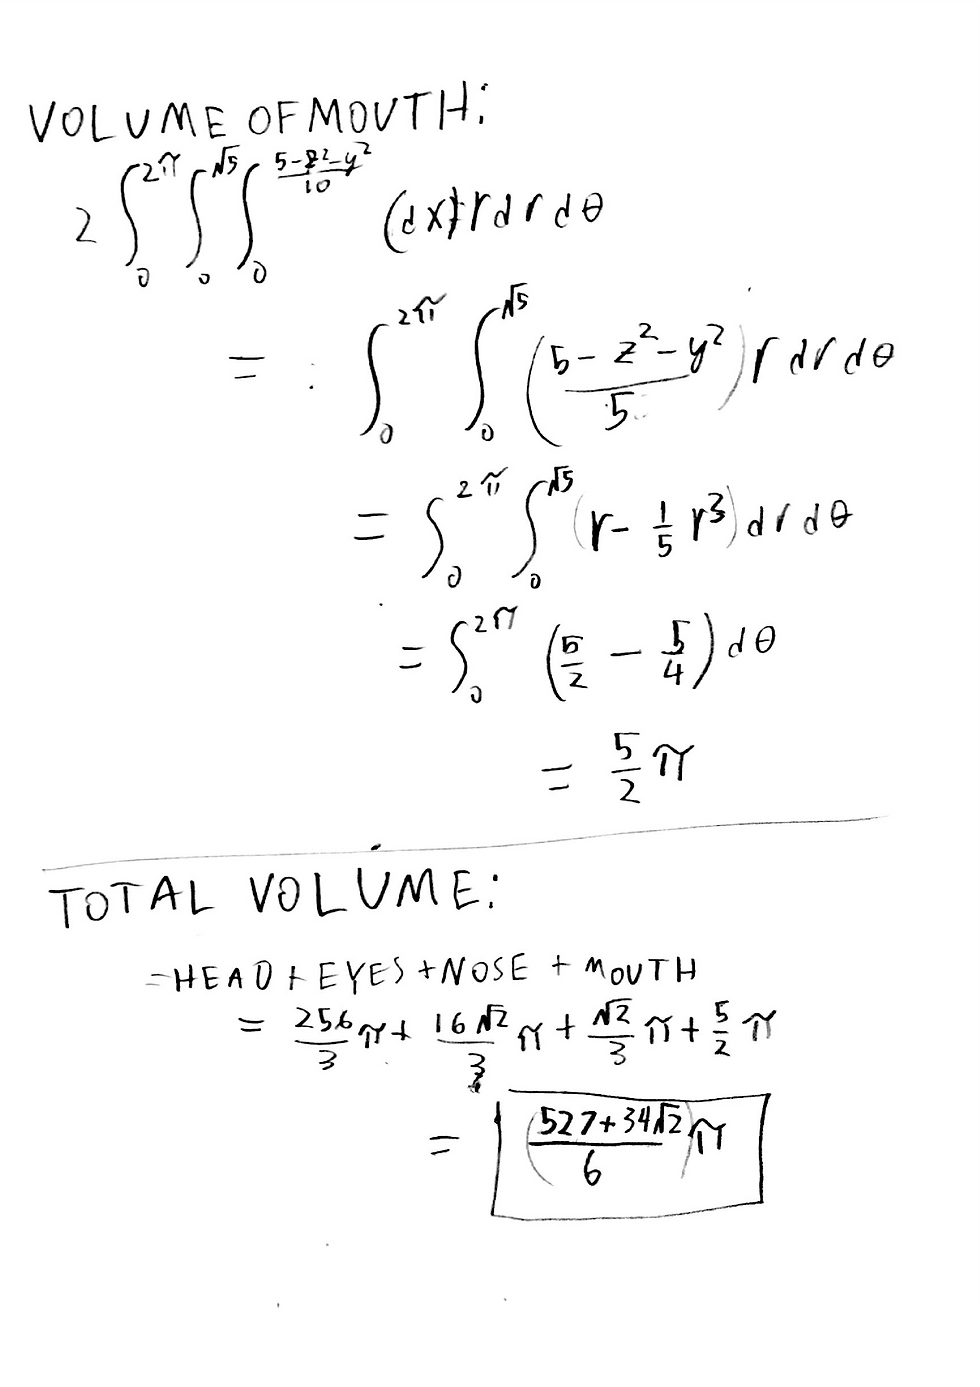 VOLUME OF MOUTH:
2 ∫₀^{2π} ∫₀^{√5} ∫₀^{(5-z²-y²)/10} (dx) r dr dθ
= ∫₀^{2π} ∫₀^{√5} ((5-z²-y²)/5) r dr dθ
= ∫₀^{2π} ∫₀^{√5} (r - 1/5 r³) dr dθ
= ∫₀^{2π} (5/2 - 5/4) dθ
= 5/2 π
TOTAL VOLUME:
= HEAD + EYES + NOSE + MOUTH
= 256/3 π + 16√2/3 π + √2/3 π + 5/2 π
= ((527+34√2)/6) π